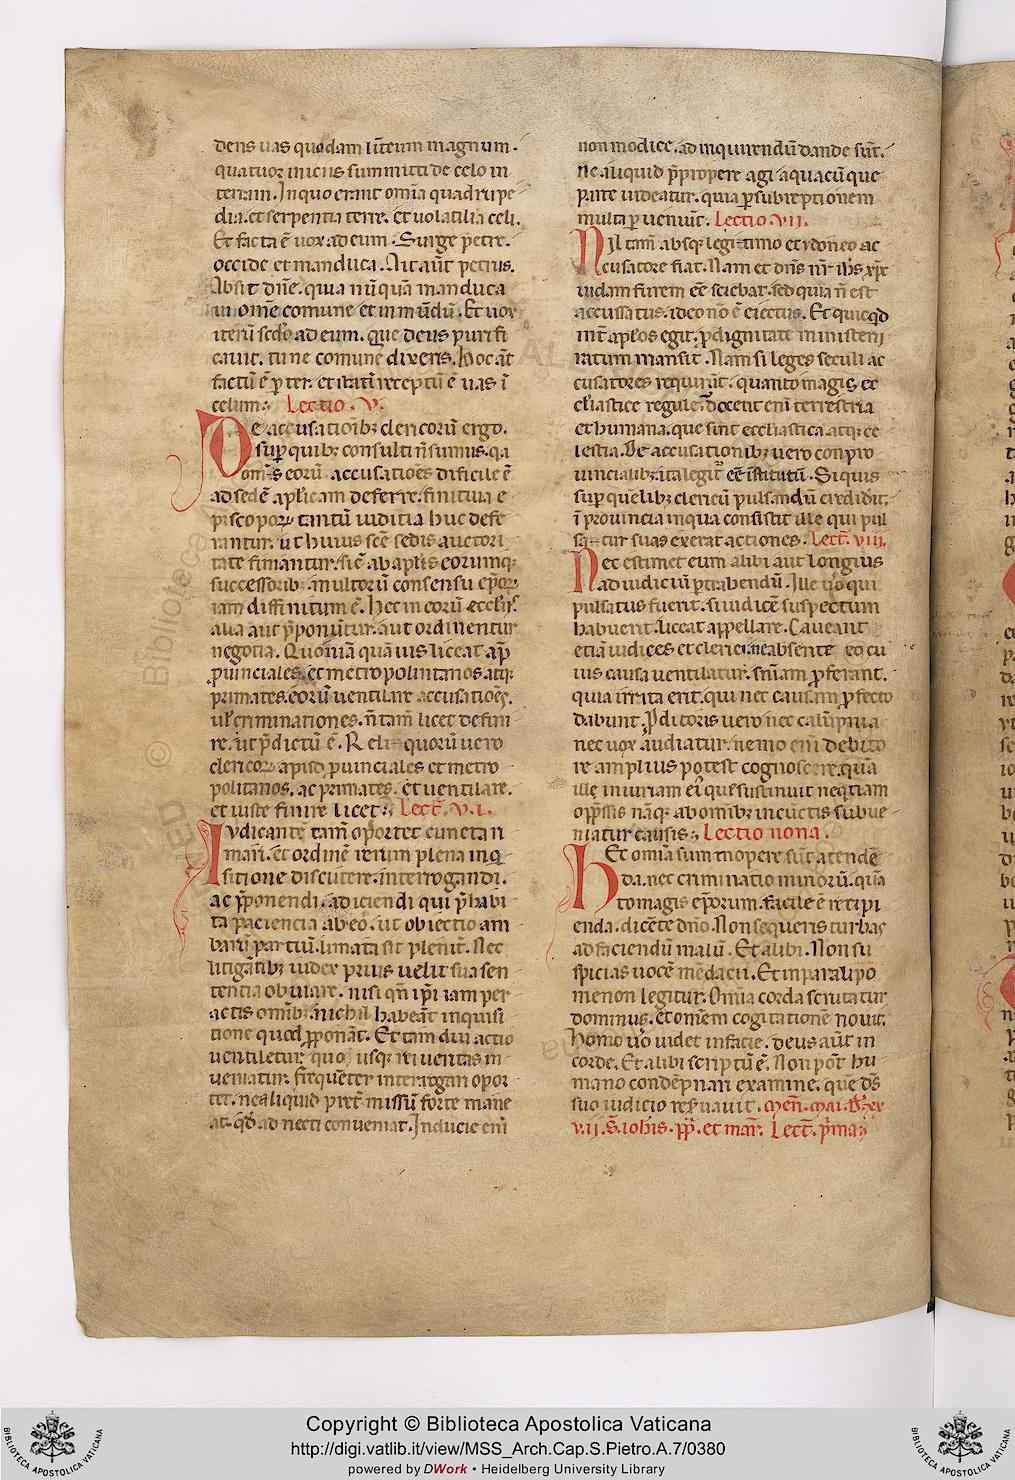 dens uas quodam lītteum magnum.
quatuor iniciis summitti de celo in
terram. In quo erant om̄ia quadrupe
dia. et serpentia terre. et uolatilia celi.
Et facta ē uox ad eum. Surge petre.
occide et manduca. Ait aūt petrus.
Absit dn̄e. quia nūquā manduca
ui om̄e comune et inmūdū. Et uox
iterū sedo ad eum. que deus purifi
cauit. tu ne comune dixeris. Hoc aūt
factū ē p ter. et statī receptū ē uas ī
celum. Lectio. V.
De accusationibꝫ clericorū ergo.
sup̄ quibꝫ consulti n̄ sumus. qa
om̄s eorū accusatiōes dificile ē
ad sedē ap̄licam deferre. finitiua e
piscoporꝝ tantū iuditia huc defe
rantur. ut huius sc̄e sedis auctori
tate finiantur. sic̄ ab apl̄is eorumqꝫ
successoribꝫ multorū consensu ep̄orꝝ
iam diffinitum ē. Nec in eorū eccl̄iis
alia aut p̄ponūtur. aut ordinentur
negotia. Quoniā quāuis liceat ap̄
puinciales. et metropolitanos atqꝫ
primates. eorū uentilare accusatiōes.
ul̓ criminationes. n̄ tam̄ licet defini
re. ut p̄dictū ē. Reliquorū uero
clericorꝝ apisd puinciales et metro
politanos. ac primates. et uentilare.
et iuste finire licet. Lect̄. V.I.
Iudicantē tam̄ oportet cuncta ri
mari. et ordinē rerum plena inq
sitione discutere. interrogandi.
ac p̄ponendi. adiciendi qui p̄habi
ta paciencia ab eo. ut obiectio am
barū partiū. limata sit pleniꝰ. Nec
litigātibꝫ iudex prius uelit sua sen
tentia obuiare. nisi qn̄ ip̄i iam per
actis om̄ibꝫ nichil habeāt inquisi
tione quod p̄ponāt. Et tam diu actio
uentiletur quo usqꝫ rei ueritas in
ueniatur. frequēter interrogari opor
tet. ne aliquid p̄termissū forte mane
at. qd̄ adnecti conueniat. Inducie eni
non modice. ad inquirendū dande sūt.
ne aliquid p̄propere agi a quacūque
parte uideatur. quia p subreptionem
multa pueniūt. Lectio. VII.
Nil tam̄ absqꝫ legitimo et ydoneo ac
cusatore fiat. Nam et dn̄s nr̄ ih̄s xp̄c
iudam furem eē sciebat. sed quia n̄ est
accusatus. ideo nō ē eiectus. Et quicqd
int̄ apl̄os egit. p dignitate ministeri
i ratum mansit. Nam si leges seculi ac
cusatores requirūt. quanto magis ec
cl̄iastice regule. docent eni terrestria
et humana. que sint eccl̄iastica. atqꝫ ce
lestia. De accusationibꝫ uero conpro
uincialibꝫ ita legitr̄ eē īstitutū. Si quis
sup̄ quēlibꝫ clericū pulsandū credidit.
ī prouincia in qua consistit ille qui pul
satur suas exerat actiones. Lect̄. VIII.
Nec estimet eum alibi aut longius
ad iudiciū ptrahendū. Ille uo qui
pulsatus fuerit. si iudicē suspectum
habuerit. liceat appellare. Caueant
etiā iudices et clerici. ne absente eo cu
ius causa uentilatur. sn̄iam pferant.
quia irrita erit. qui nec causam pfecto
dabunt. Pditoris uero nec calūpnia
nec uox audiatur. nemo eni debito
re amplius potest cognoscere. quā
ille iniuriam ei que sustinuit neqꝫ etiam
op̄ssis naqꝫ ab omibꝫ in cūctis subue
niatur causis. Lectio nona.
Et omīa summopere sūt atendē
da. nec criminatio minorū. quā
to magis ep̄orum. facile ē recipi
enda. dicēte dn̄o. Non sequeris turbas
ad faciendū malū. Et alibi. Non su
spicias uocē mēdacii. Et in paralipo
menon legitur. Om̄ia corda scrutatur
dominus. et om̄em cogitationē nouit.
Homo uo uidet in facie. deus aūt in
corde. Et alibi scriptū ē. Non pōt hu
mano condēpnari examine. quē ds̄
suo iudicio reseruauit. Men̄. Mai. Die XX
V.II. S. ioh̄is. pp̄. et mar̄. Lect̄. p̄ma
Copyright © Biblioteca Apostolica Vaticana
http://digi.vatlib.it/view/MSS_Arch.Cap.S.Pietro.A.7/0380
powered by DWork • Heidelberg University Library
BIBLIOTECA APOSTOLICA VATICANA
BIBLIOTECA APOSTOLICA VATICANA